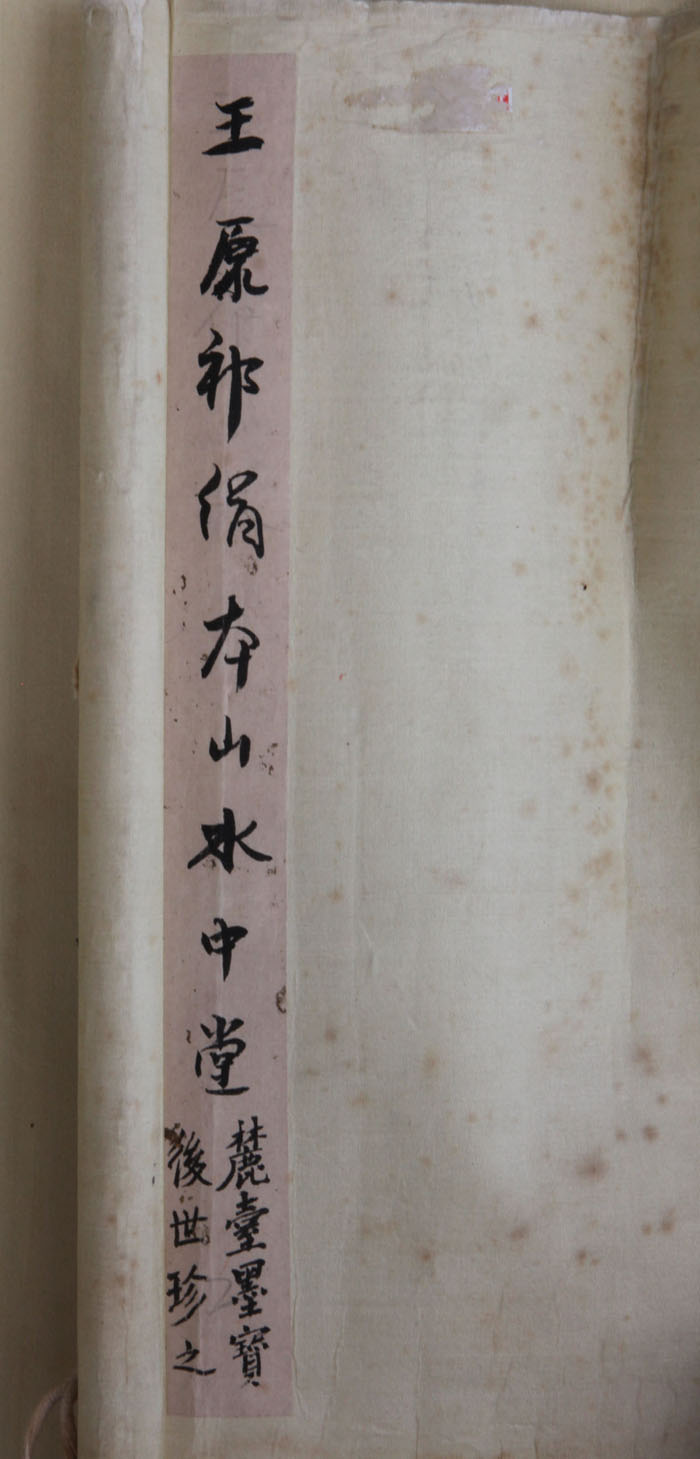 王原祁绢本山水中堂
麓臺墨寶
後世珍之